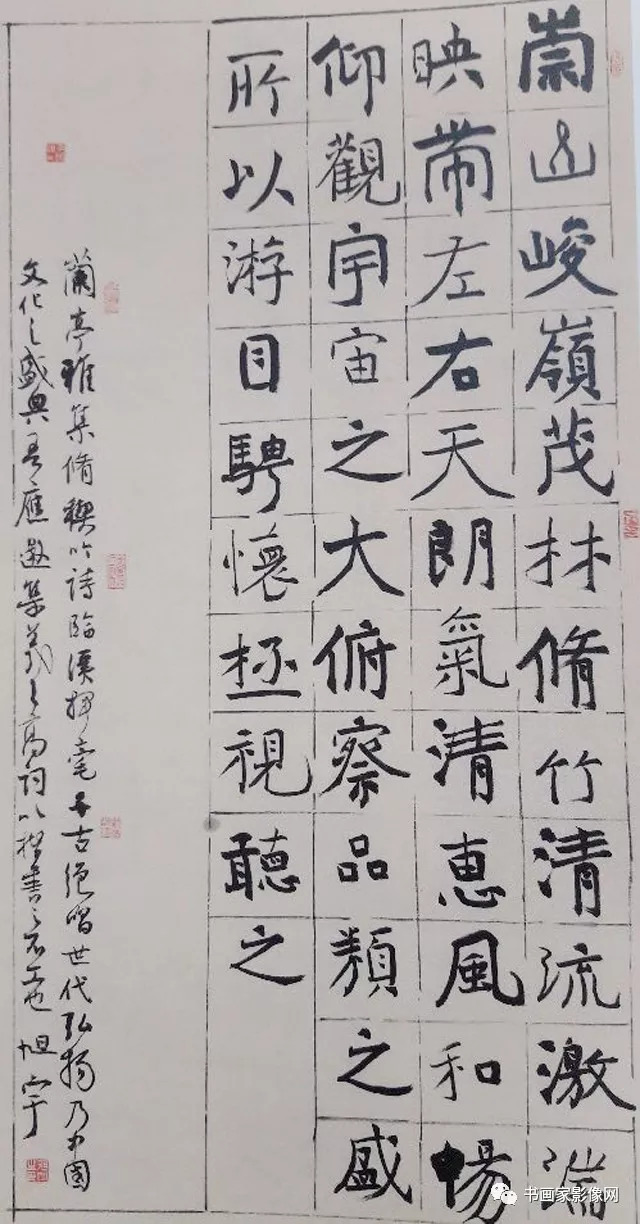 崇山峻嶺茂林脩竹清流激湍
映帶左右天朗氣清恵風和暢
仰觀宇宙之大俯察品類之盛
所以游目騁懷極視聽之
蘭亭雅集脩禊吟詩臨溪揮毫千古絕唱世代弘揚乃中國
文化之盛典吾應邀集羲之高詞以楷書之不工也 旭宇
书画家影像网